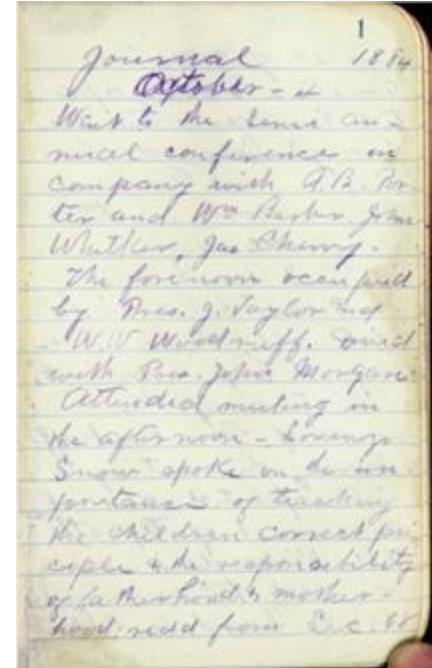 1
Journal 1884
October - 4
Went to the Semi an-
nual conference in
company with A.B. Por-
ter and Wm Barber John
Whitker, Jas Cherry.
The forenoon occupied
by Pres. J. Taylor and
W.W Woodruff. Dined
with Pres. John Morgan.
Attended meeting in
the afternoon - Lorenzo
Snow spoke on the im
portance of teaching
the children correct prin
ciple & the responsibility
of fatherhood & mother-
hood; redd from Sec. 68